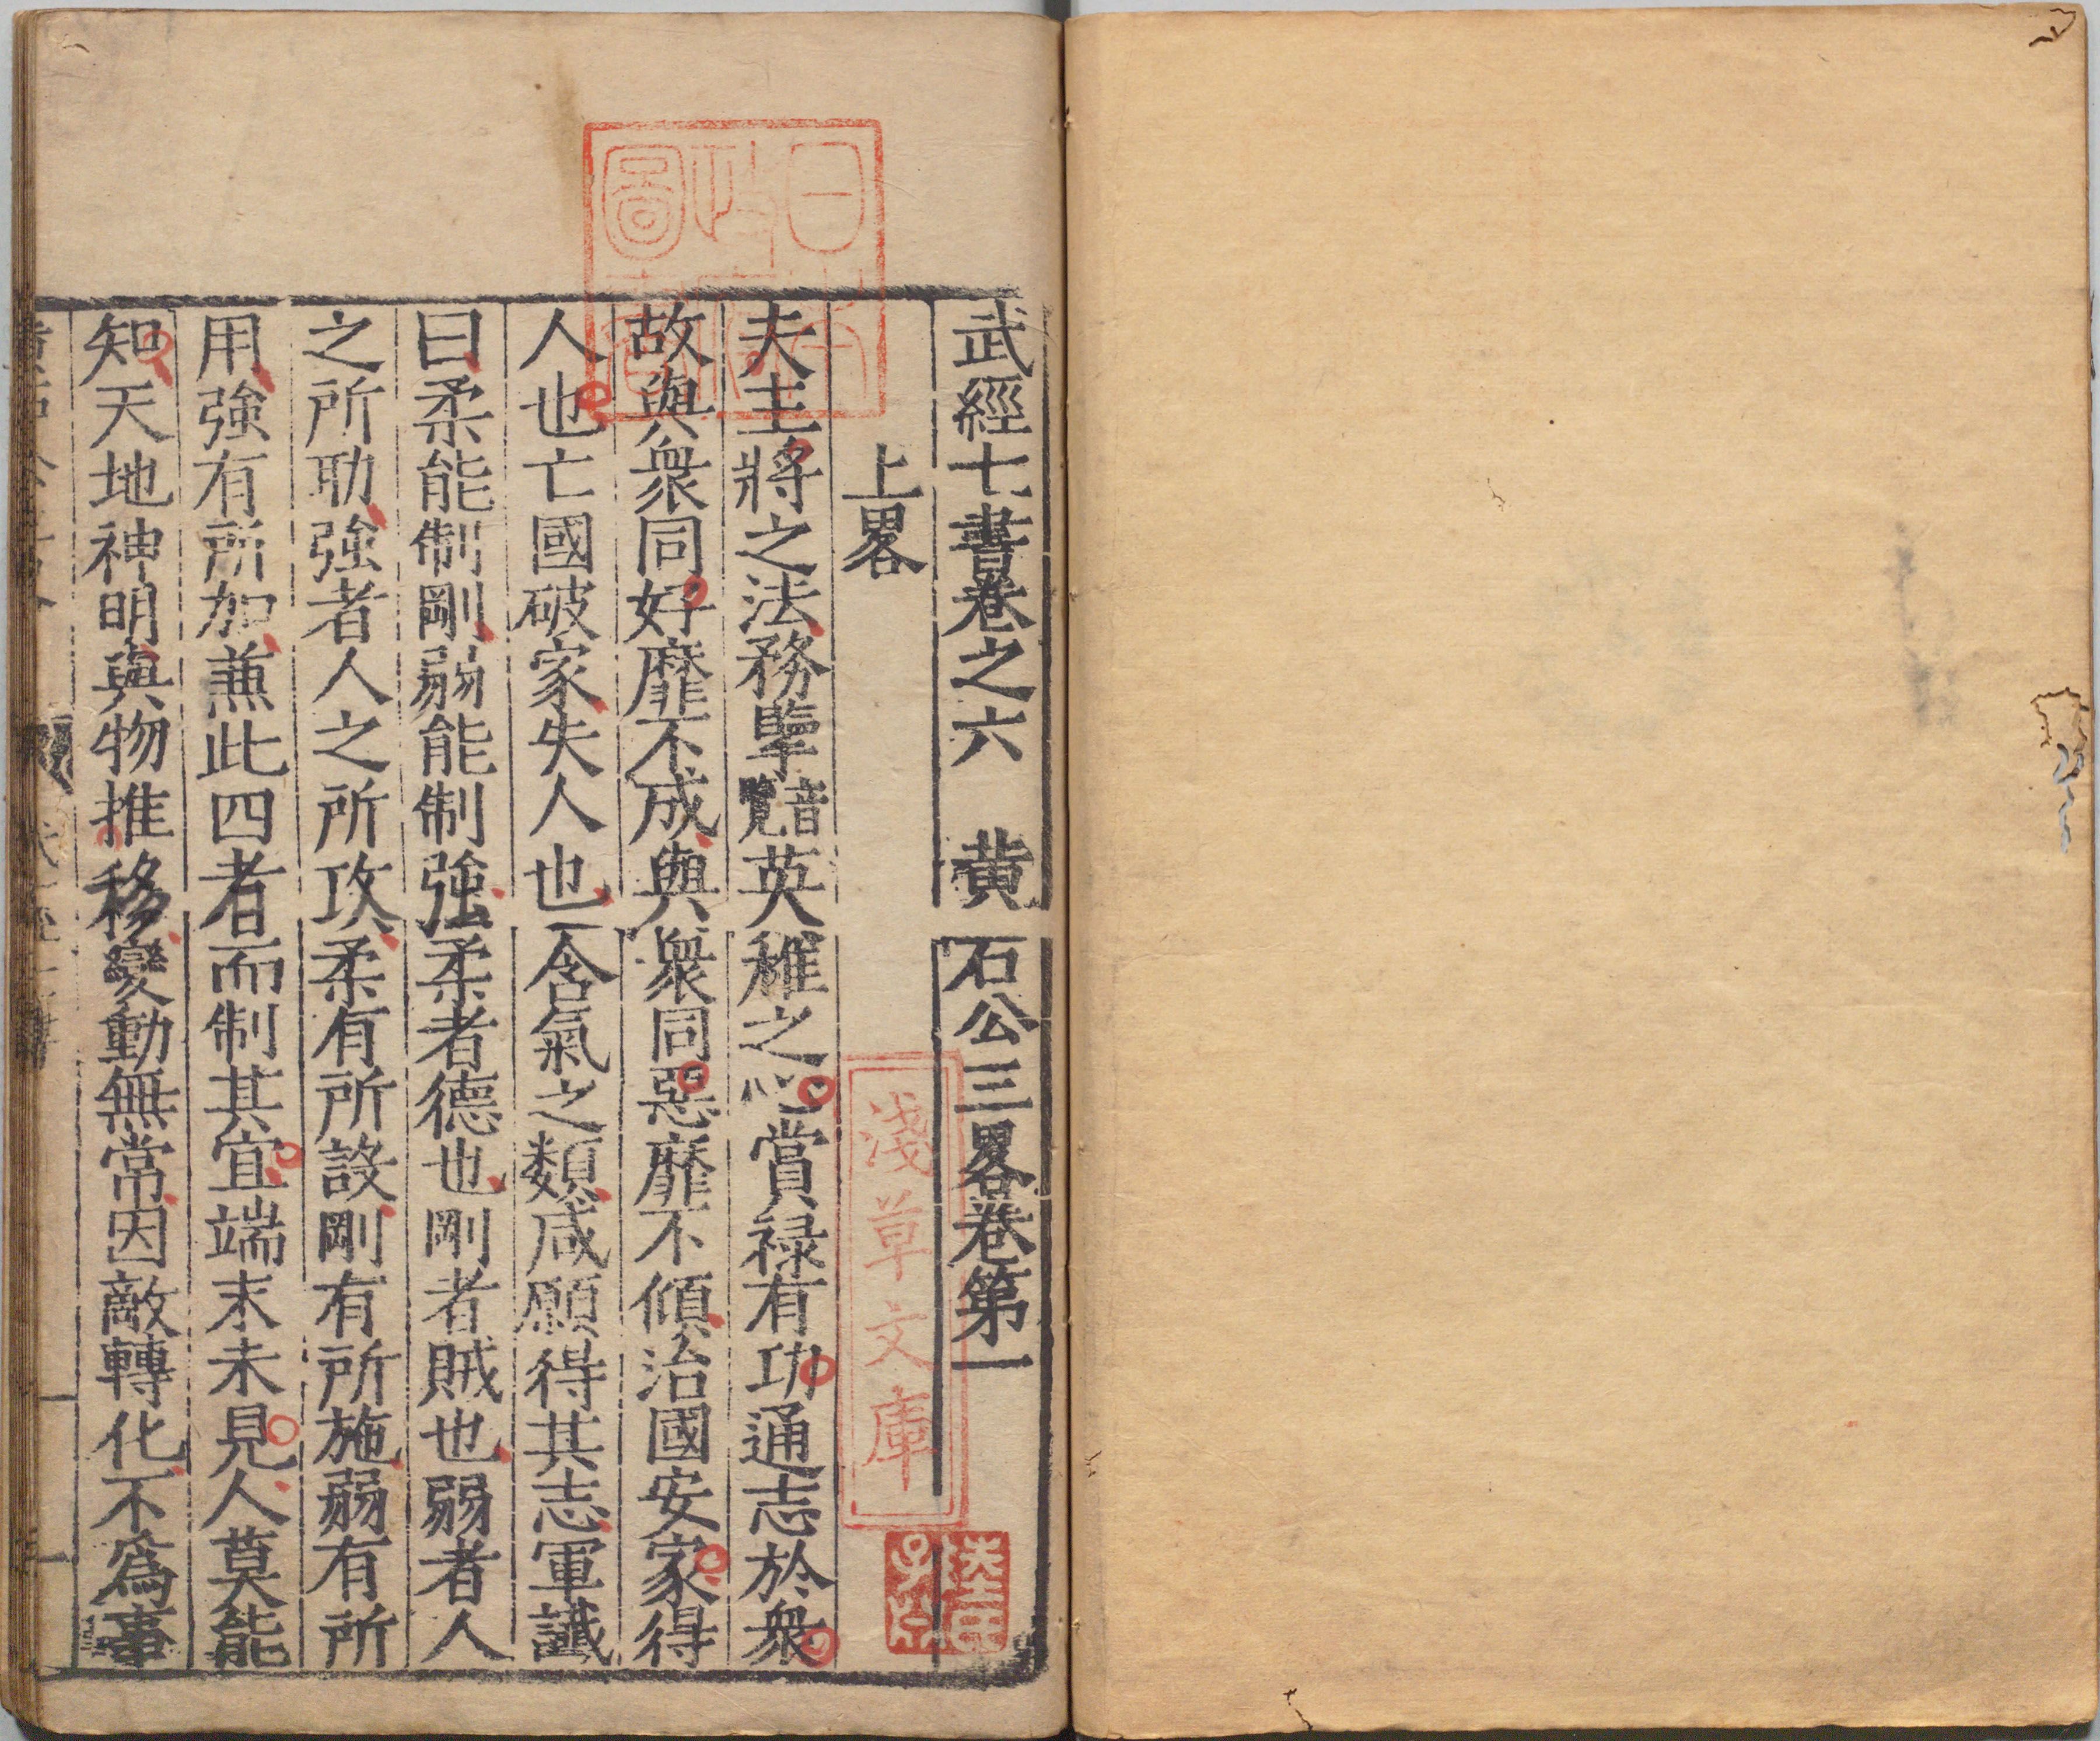 武經七書卷之六　黃石公三畧卷第一
上畧
夫主將之法務擥音覽英雄之心賞禄有功通志於衆
故與衆同好靡不成與衆同惡靡不傾治國安家得
人也亡國破家失人也含氣之類咸願得其志軍讖
曰柔能制剛弱能制強柔者德也剛者賊也弱者人
之所助強者人之所攻柔有所設剛有所施弱有所
用強有所加兼此四者而制其宜端末未見人莫能
知天地神明與物推移變動無常因敵轉化不爲事
淺草文庫